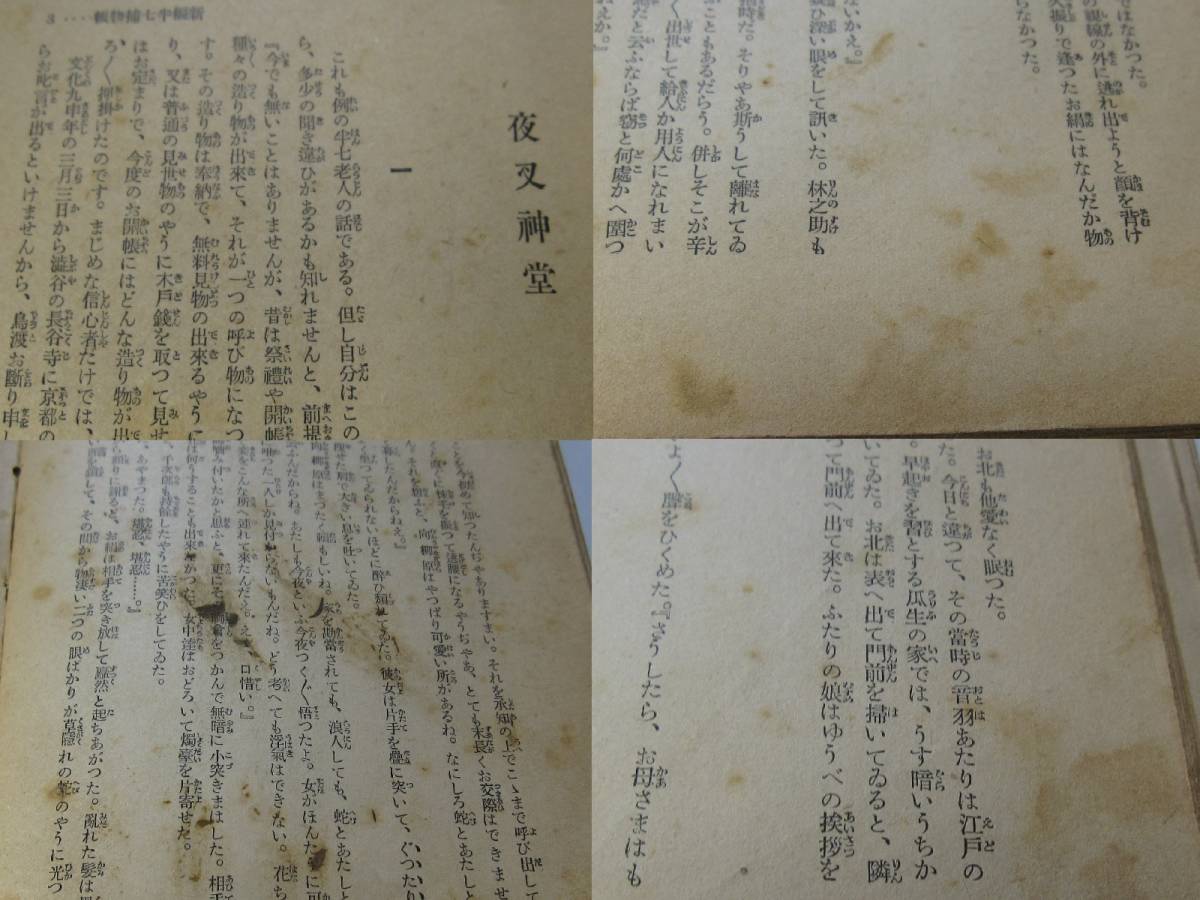 新編半七捕物帳‥‥3
夜叉神堂
一
これも例の半七老人の話である。但し自分はこの
ら、多少の聞き違ひがあるかも知れませんと、前提
『今でも無いことはありませんが、昔は祭禮や開帳
種々の造り物が出來て、それが一つの呼び物になつ
す。その造り物は奉納で、無料見物の出來るやうに
り、又は普通の見世物のやうに木戸錢を取つて見せ
はお定まりで、今度のお開帳にはどんな造り物が出
ろ〳〵押掛けたのです。まじめな信心者だけでは、
文化九申年の三月三日から澁谷の長谷寺に京都の
らお叱言が出るといけませんから、鳥渡お斷り申し
ではなかつた。
の視線の外に逃れ出ようと顏を背け
久振りで逢つたお絹にはなんだか物
らなかつた。
ないかえ。』
疑ひ深い眼をして訊いた。林之助も
時だ。そりやあ斯うして離れてゐ
こともあるだらう。併しそこが辛
く出世して給人か用人になれまい
だと云ふならば窃と何處かへ圍つ
ねえか。』
とを今初めて知つたんぢやありますまい。それを承知の上でこゝまで呼び出して
を振つて逃腰になるやうぢやあ、とても末長くお交際はできませ
を擧ぶと、向柳原はやつぱり可愛い所があるね。なにしろ蛇とあたしと
たんだからねえ。』
く坐つてゐられないほどに醉ひ頽れてゐた。彼女は片手を疊に突いて、ぐつたり
せた肩で大きい息を吐いてゐた。
向柳原はまつたく頼もしいね。家を勘當されても、浪人しても、蛇とあたしと
んだからね。あたしも今夜といふ今夜つく〴〵悟つたよ。女がほんたうに可
唯つた一人しか見付からないもんだね。どう考へても浮氣はできない。花ち
をこんな所へ連れて來たんだえ。えゝ、口惜い。』
噛み付いたかと思ふと、更にその胸倉をつかんで無暗に小突きまはした。相手
は何うすることも出來なかつた。女中達はおどろいて燭臺を片寄せた。
千次郎も持餘したやうに苦笑ひをしてゐた。
、あやまつた。堪忍、堪忍……。』
に謝ると、お絹は相手を突き放して蹶然と起ちあがつた。亂れた髮は
して、その間から物凄い二つの眼ばかりが草隱れの蛇のやうに光つ
お北も他愛なく眠つた。
た。今日と違つて、その當時の音羽あたりは江戸の
早起きを習とする瓜生の家では、うす暗いうちか
いてゐた。お北は表へ出て門前を掃いてゐると、隣
つて門前へ出て來た。ふたりの娘はゆうべの挨拶を
よく〳〵聲をひくめた。『さうしたら、お母さまはも